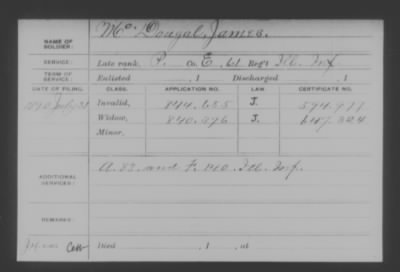 NAME OF SOLDIER: McDougal, James.
SERVICE: Late rank, P. Co. E, 61 Reg't Ill. Inf.
TERM OF SERVICE: Enlisted , 1 Discharged , 1
DATE OF FILING. CLASS. APPLICATION NO. LAW. CERTIFICATE NO.
1890 July 31 Invalid, 844.655 J.
Widow, J.
Minor,
ADDITIONAL SERVICES: and F. 140 Ill. Inf.
REMARKS:
Died , 1 , at